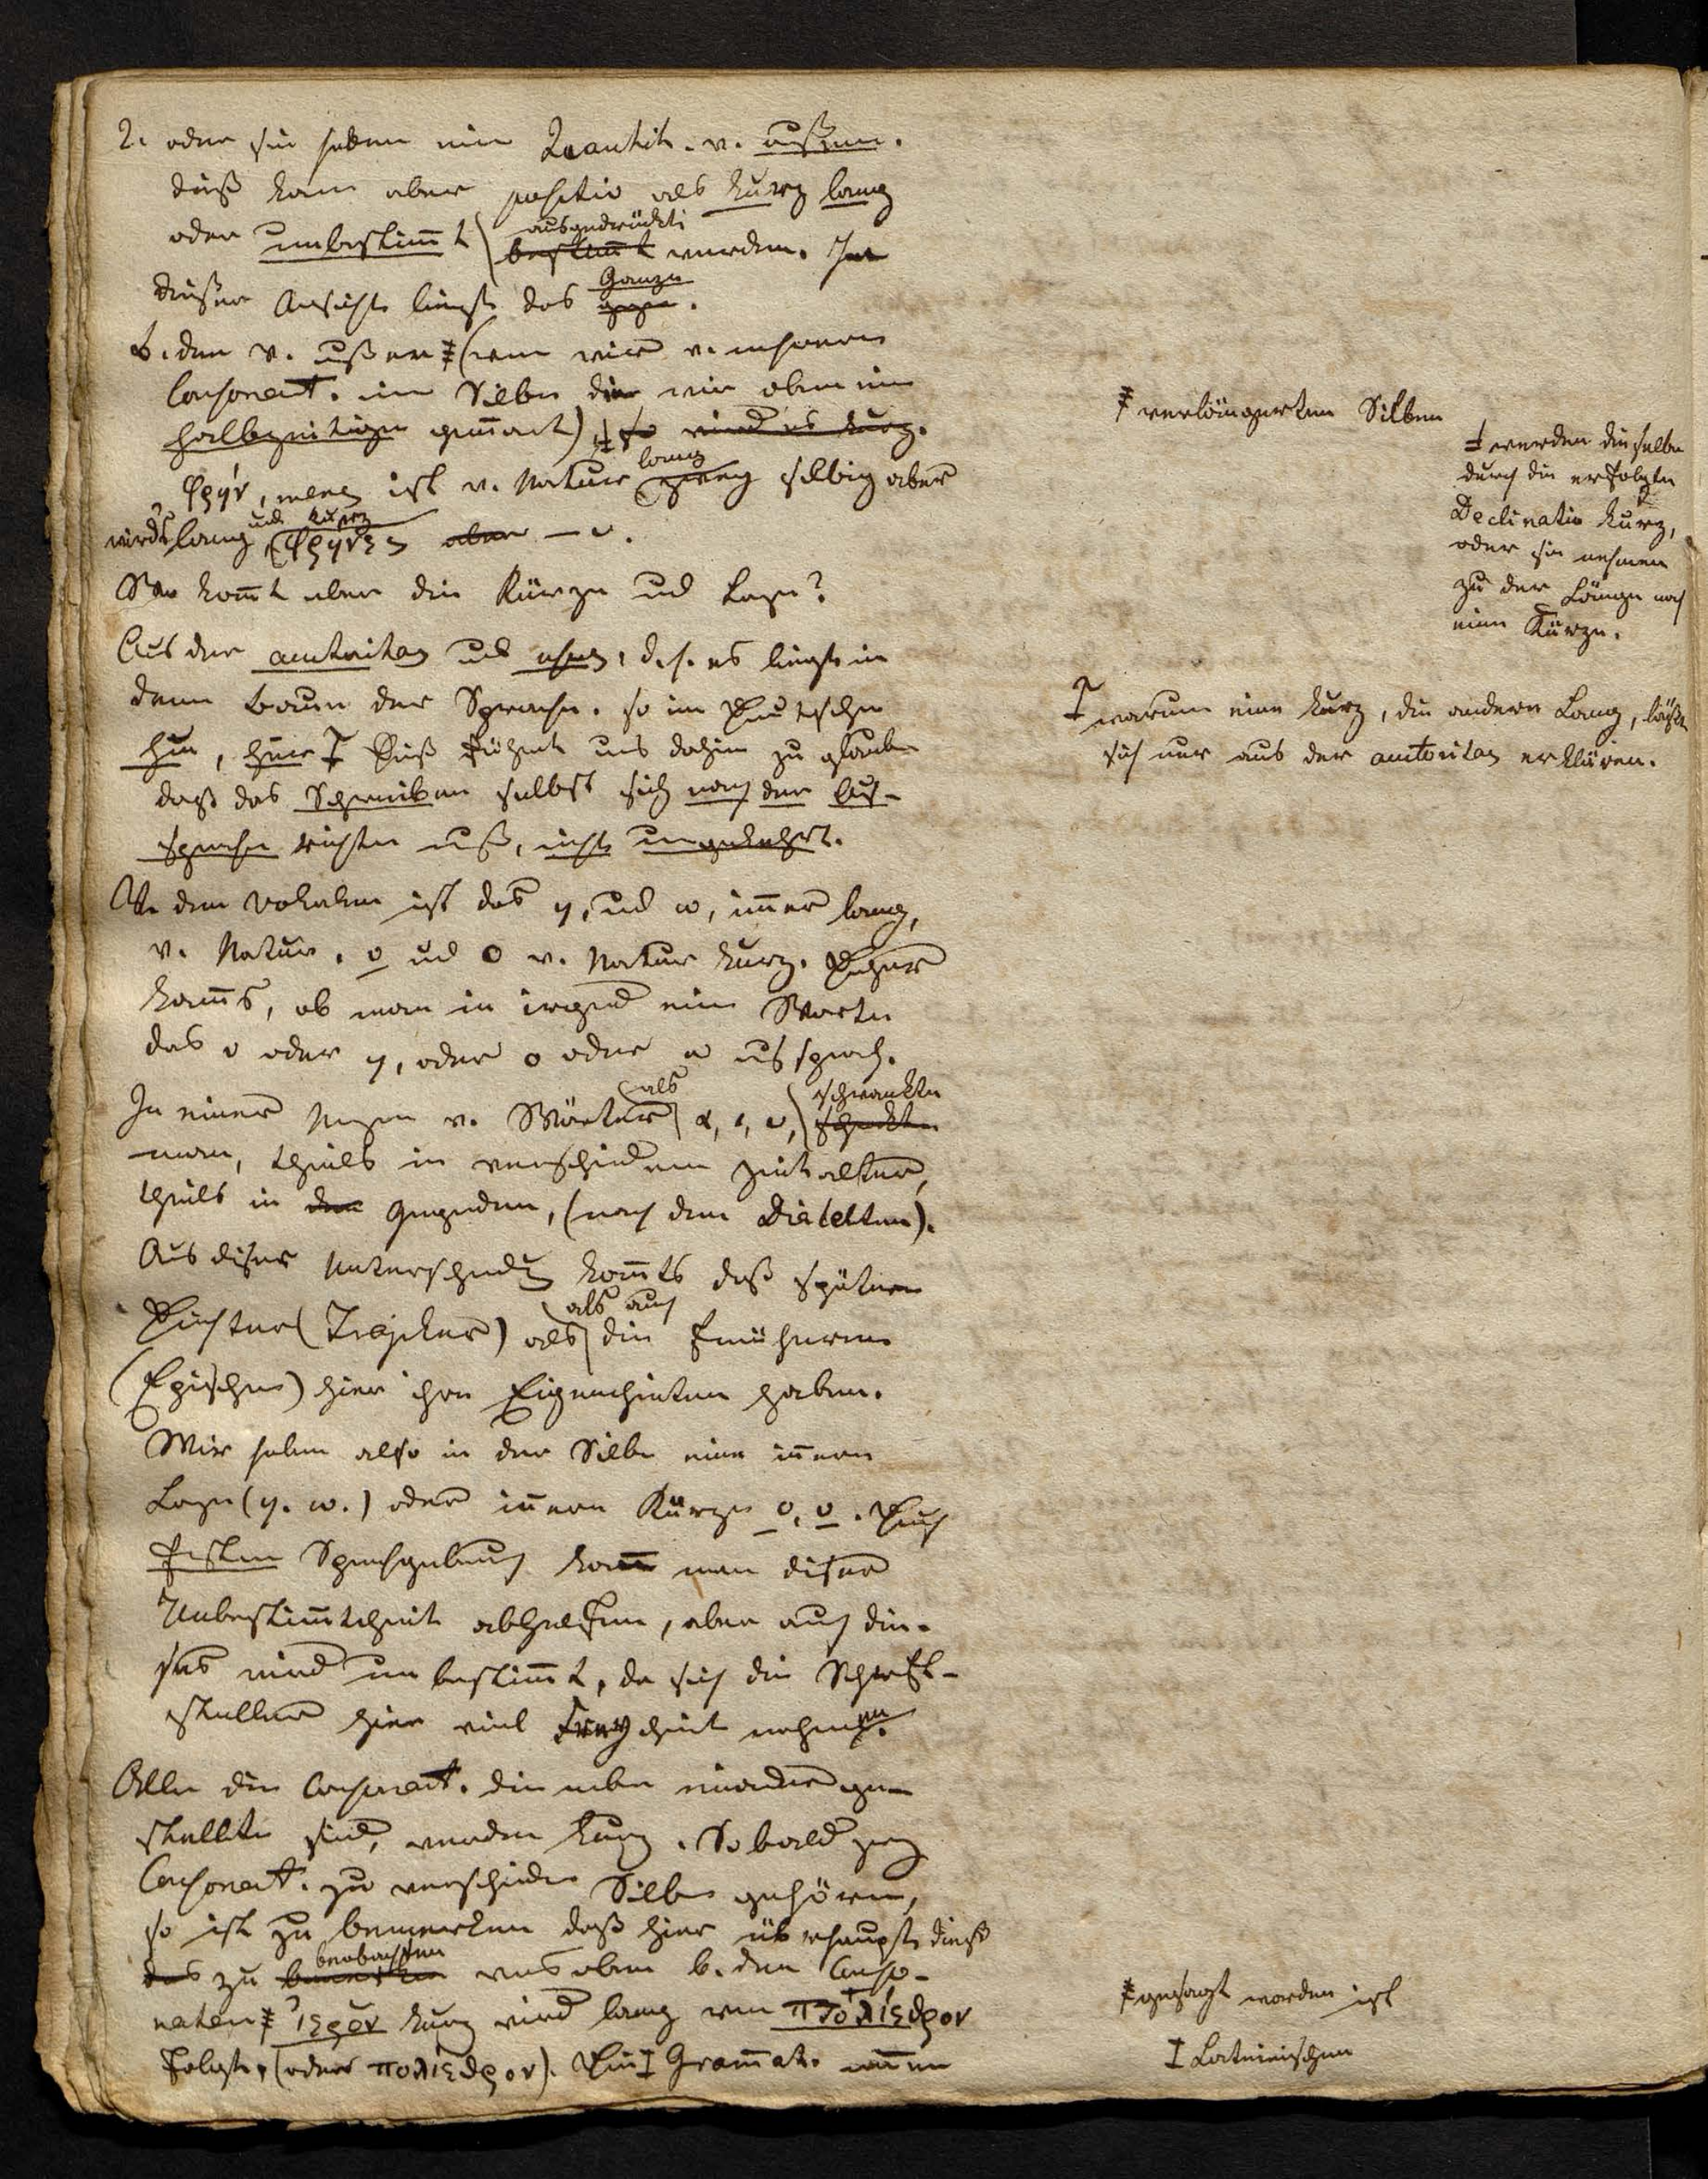 2. oder sie haben eine Quantit. v. außen.
dieß kann aber positiv als kurz lang
oder unbestim̅t ausgedrückt bestim̅t werden. In
dieser Ansicht liegt das Ganze
b. den v. außen ‡ (wenn wir v. mehreren
Consonant. eine Silbe die wir oben eine
halbzeitige genan̅t) ‡ so wird es kurz.
φρήν, mens ist v. Natur lang silbig aber
wirds lang und kurz φρήνες aber – ᴗ.
Wo kom̅t aber die Kürze und Länge?
Aus der autoritas und usus, d. h. es liegt in
dem Baue der Sprache. so im Deutschen
hin, hier ‡ Dieß führt uns dahin zu glauben
daß das Schreiben selbst sich nach der Aus-
sprache richten muß, nicht umgekehrt.
In den Vokalen ist das η, und ω, im̅er lang,
v. Natur. ο und ο v. Natur kurz. Daher
kam̅s, ob man in irgend einem Worte
das ο oder η, oder ο oder ω aussprach.
In einer Menge v. Wörtern als α, ι, υ, schwankte
man, theils in verschiedenen Zeitaltern,
theils in den Gegenden, (nach den Dialekten).
Aus dieser Unterscheidung kom̅ts daß spätere
Dichter (Tragiker) als als auch die früheren
(Epischen) hier ihre Eigenheiten haben.
Wir haben also in der Silbe eine in̅ere
Länge (η. ω.) oder in̅ere Kürze ο, ο. Durch
festen Sprachgebrauch kan̅ man dieser
Unbestim̅theit abhelfen, aber auch die-
ses wird unbestim̅t, da sich die Schrift-
steller hier viel Freyheit nehmen.
Alle die Consonant. die neben einander ge-
stellt sind, werden kurz. Sobald zwey
Consonant. zu verschiedenen Silben gehören,
so ist zu bemerken daß hier überhaupt dieß
das zu beobachten was oben b. den Conso-
nanten ‡ ἱερὸν kurz wird lang wenn πτολίεθρον
folgt, (oder πολίεθρον). Die ‡ Gram̅at. nen̅en
‡ verlängerten Silben
‡ werden dieselben
durch die erfolgte
Declination kurz,
oder sie nehmen
zu der Länge noch
eine Kürze.
‡ warum eine kurz, die andere Lang, läßt
sich nur aus der autoritas erklären.
‡ gesagt worden ist
‡ Lateinischen